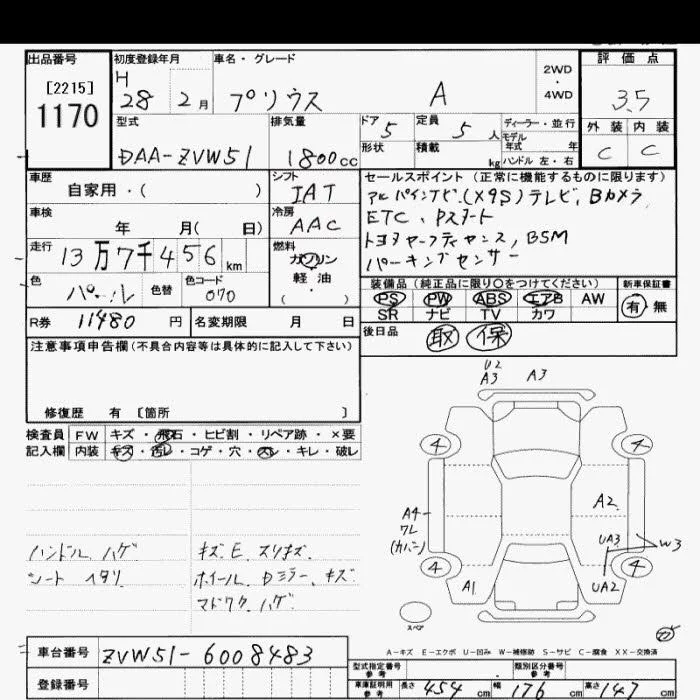 出品番号
[2215]
1170
初度登録年月
H
28 2月
車名・グレード
プリウス A
2WD
・
4WD
評価点
3.5
外装 内装
C C
型式
DAA-ZVW51
排気量
1800cc
ドア 5
形状
定員 5人
積載 kg
ディーラー・並行
モデル年式 年
ハンドル 左・右
車歴
自家用・( )
シフト
IAT
セールスポイント (正常に機能するものに限ります)
アルパインナビ(X9S)テレビ, Bカメラ
ETC、Pスタート
トヨタセーフティセンス, BSM
パーキングセンサー
車検
年 月( 日)
冷房
AAC
走行
13万7千456km
燃料
ガソリン
・
軽油
( )
色
パール
色替
色コード
070
装備品 (純正品に限り○をつけてください)
PS PW ABS エアB AW
SR ナビ TV カワ
新車保証書
有 無
R券 11480円
名変期限 月 日
後日品
取 保
注意事項申告欄(不具合内容等は具体的に記入して下さい)
修復歴 有 [箇所 ]
検査員
記入欄
FW キズ・飛石・ヒビ割・リペア跡・×要
内装 キズ・汚レ・コゲ・穴・スレ・キレ・破レ
ハンドル ハゲ
シート ヘタリ
キズ E スリキズ
ホイール、Dミラー、キズ
マドワク ハゲ
U2
A3
A3
4
4
A4
ワレ
(カバー)
A2
UA3
W3
4
4
A1
UA2
スペア
A-キズ E-エクボ U-凹み W-補修跡 S-サビ C-腐食 XX-交換済
車台番号
ZVW51-6008483
登録番号
型式指定番号
参考
類別区分番号
参考
車庫証明用
参考
長さ 454cm 幅 176cm 高さ 147cm